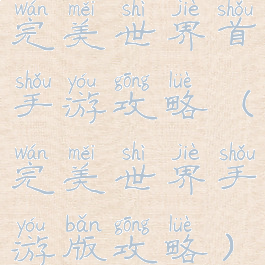 wán měi shì jiè shǒu
完美世界首
shǒu yóu gōng lüè
手游攻略（
wán měi shì jiè shǒu
完美世界手
yóu bǎn gōng lüè
游版攻略）